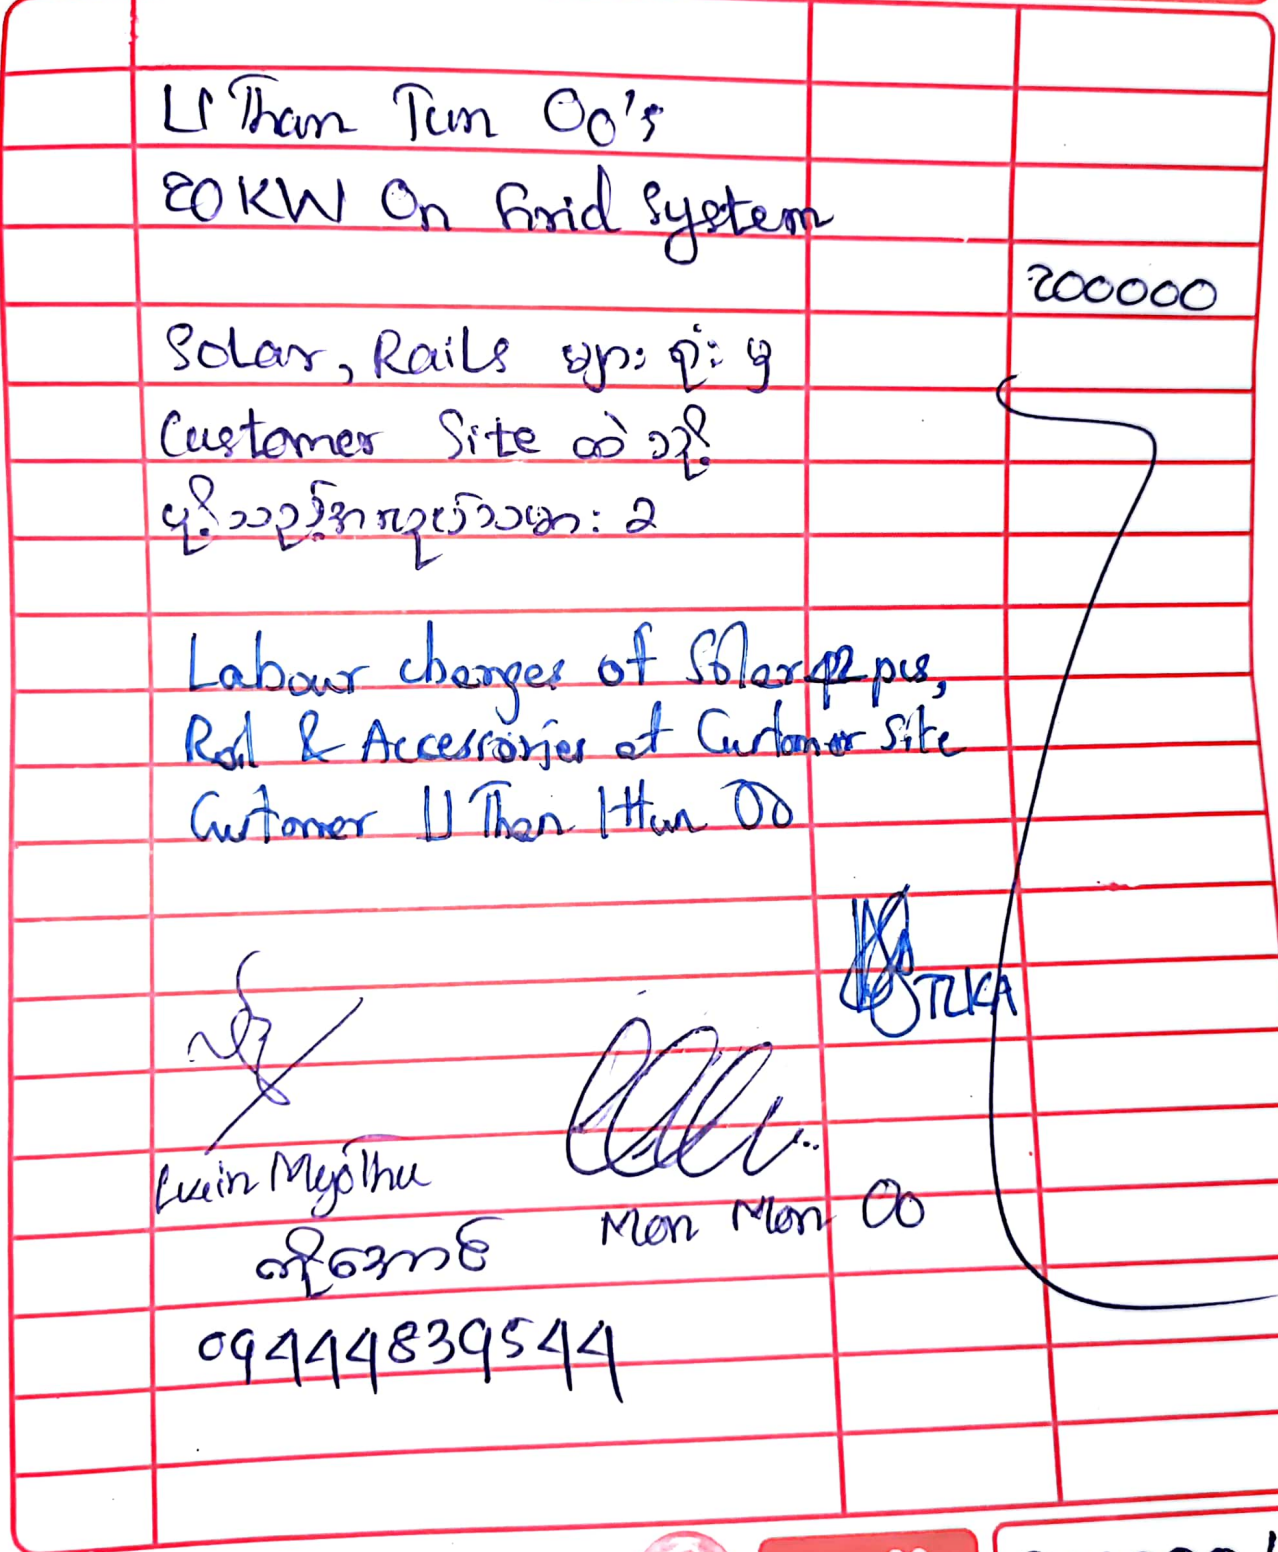 U Than Tun Oo's
20KW On Grid System
200000
Solar, Rails များ ရုံးမှ
Customer Site ထဲသို့
ပို့သည့်အလုပ်သမား : 2
Labour charges of Solar 42 pcs,
Rail & Accessories at Customer Site
Customer U Than Htun Oo
TZKA
Lwin Myo Thu
Mon Mon Oo
ကိုအောင်
09444839544